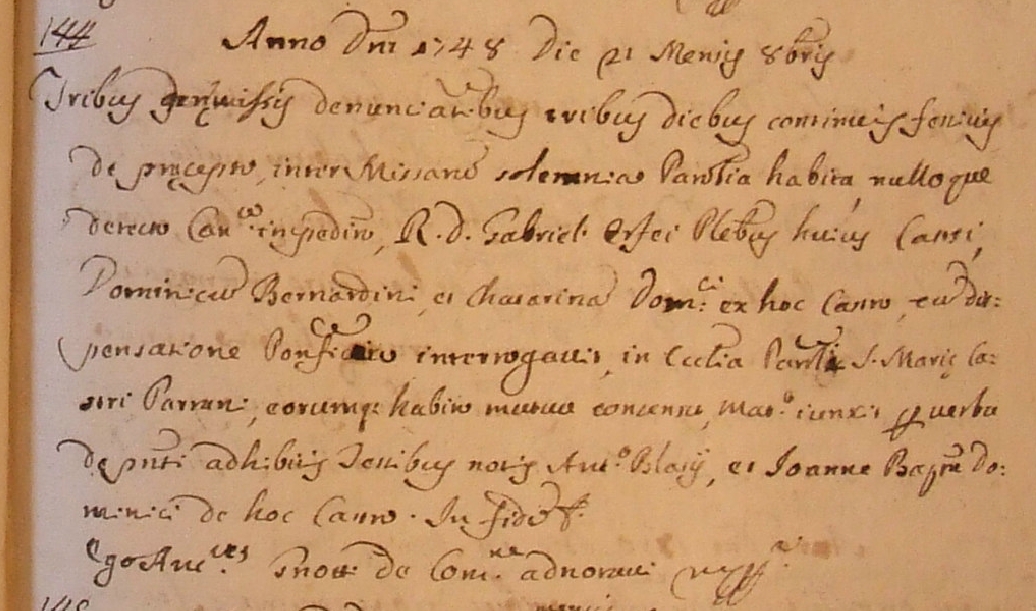 144
Anno Dni 1748 Die 21 Mensis 8bris
Tribus denunciatibus tribus diebus continuis festivis
de pręcepto, inter Missarũ solemnia Parolia habita, nulloque
detecto Can.co impedim, R. D. Gabriel Orfei Plebus huius Castri,
Dominicũ Bernardini, et Chatarinã Dom:ci ex hoc Castro, cũ dis:
pensatione interrogavit, in Ecclia Parolì S. Marię Ca:
stri Parrani, eorumq: habito mutuo consensu, Mat.o iunxit p verba
de pnti adhibitis Testibus notis Ant.o Blasij, et Ioanne Bapta Do:
minici de hoc Castro. In fidẽ
Ego de Com.ne adnotavi
145